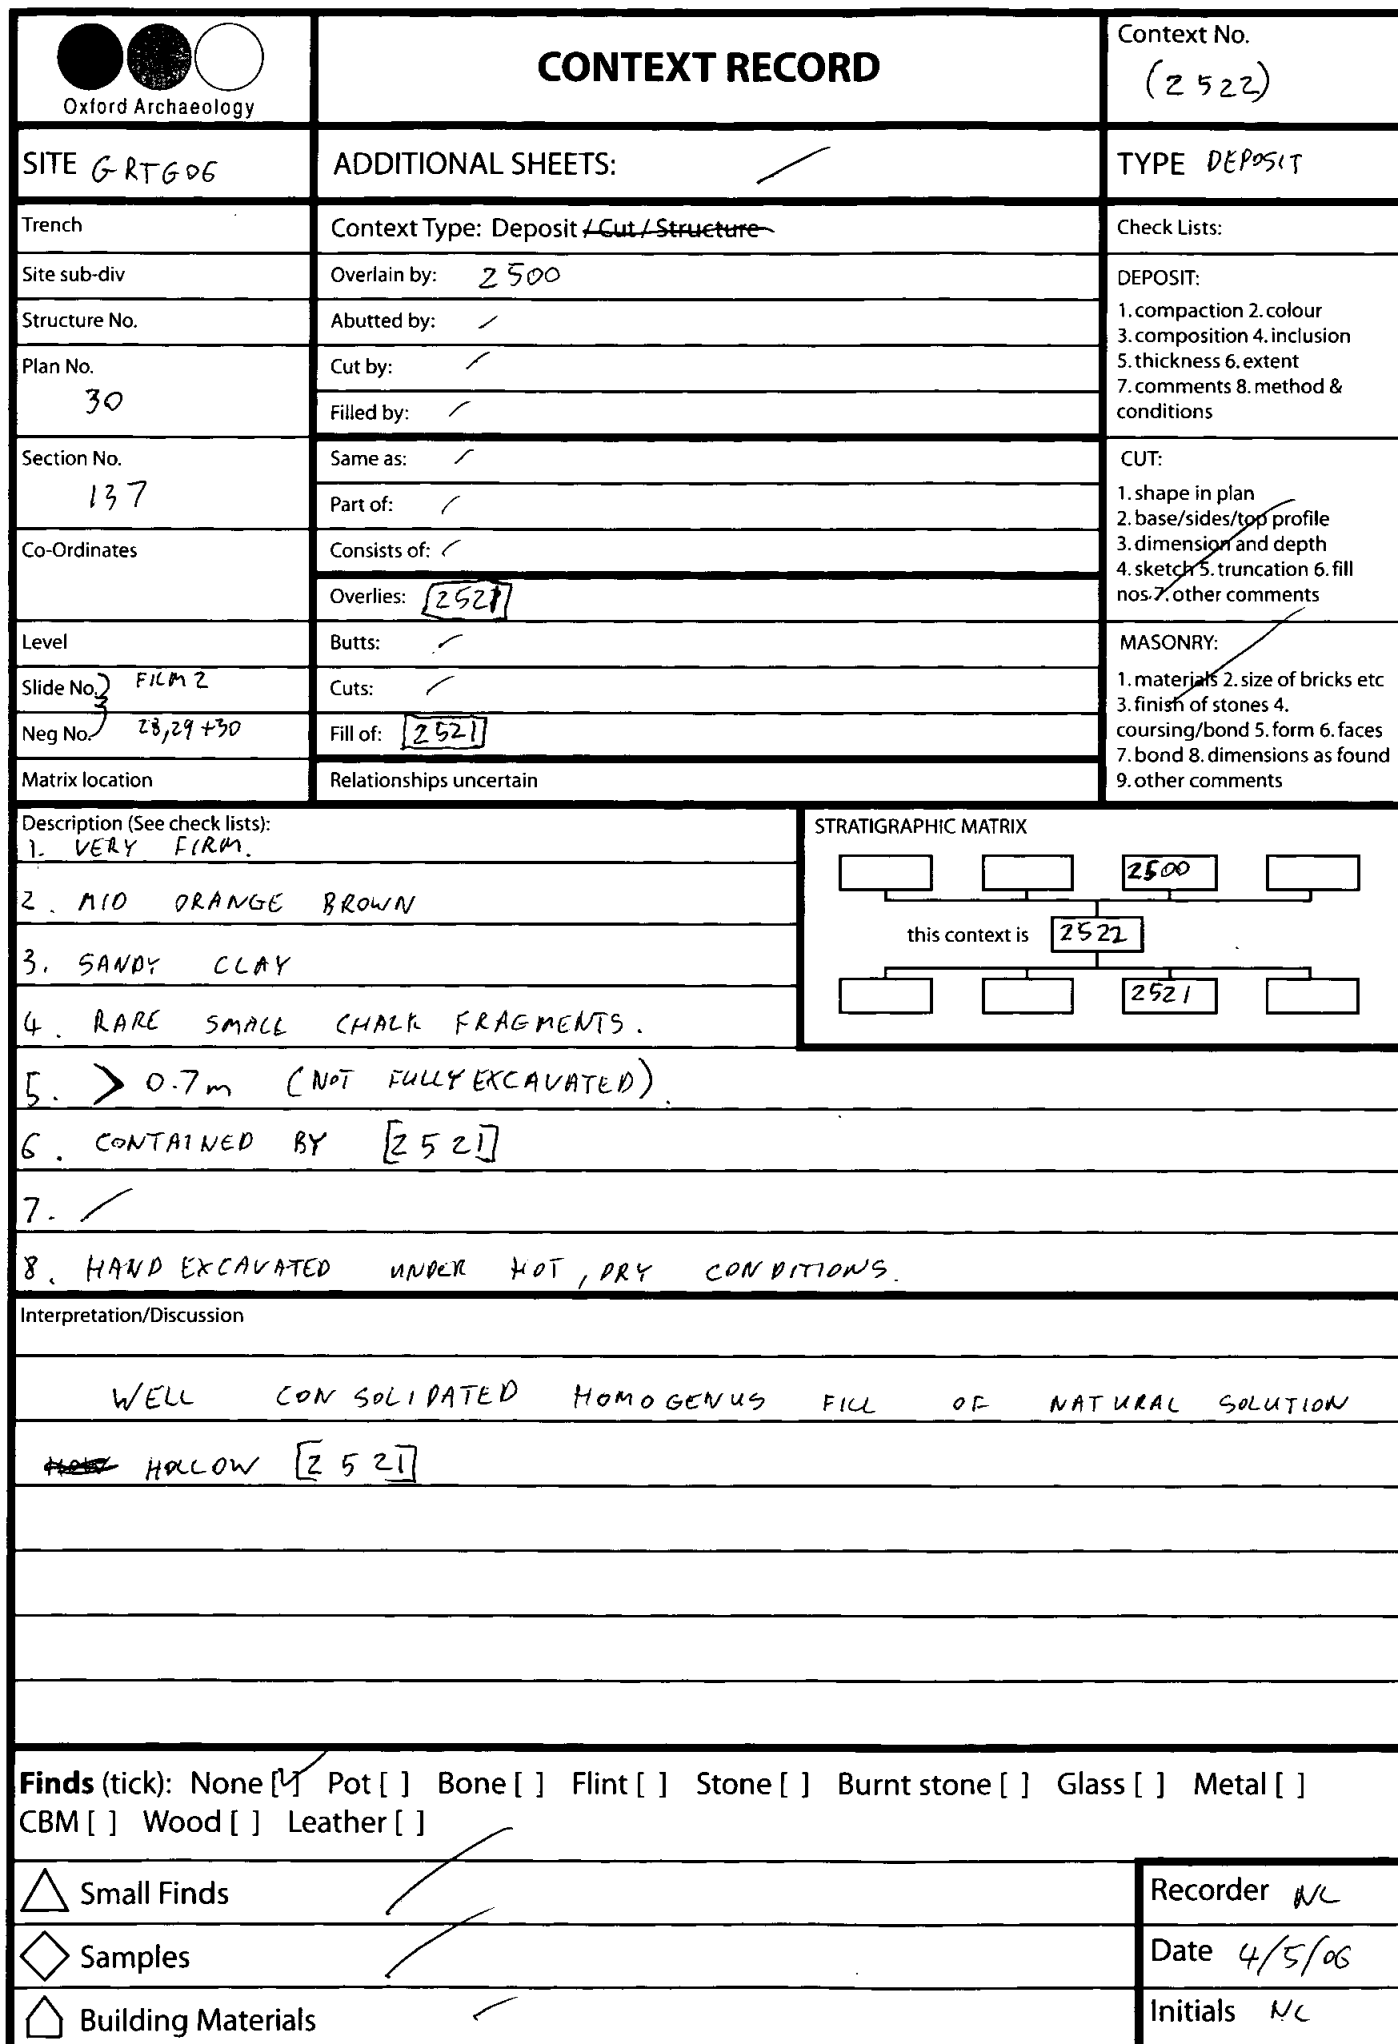 Oxford Archaeology
CONTEXT RECORD
Context No.
(2522)
SITE GRTG06
ADDITIONAL SHEETS: /
TYPE DEPOSIT
Trench
Site sub-div
Structure No.
Plan No.
30
Section No.
137
Co-Ordinates
Level
Slide No. FILM 2
Neg No. 28,29+30
Matrix location
Context Type: Deposit / Cut / Structure
Overlain by: 2500
Abutted by: /
Cut by: /
Filled by: /
Same as: /
Part of: /
Consists of: /
Overlies: [2521]
Butts: /
Cuts: /
Fill of: [2521]
Relationships uncertain
Check Lists:
DEPOSIT:
1. compaction 2. colour
3. composition 4. inclusion
5. thickness 6. extent
7. comments 8. method &
conditions
CUT:
1. shape in plan
2. base/sides/top profile
3. dimension and depth
4. sketch 5. truncation 6. fill
nos. 7. other comments
MASONRY:
1. materials 2. size of bricks etc
3. finish of stones 4.
coursing/bond 5. form 6. faces
7. bond 8. dimensions as found
9. other comments
Description (See check lists):
1. VERY FIRM.
2. MID ORANGE BROWN
3. SANDY CLAY
4. RARE SMALL CHALK FRAGMENTS.
5. > 0.7m (NOT FULLY EXCAVATED).
6. CONTAINED BY [2521]
7. /
8. HAND EXCAVATED UNDER HOT, DRY CONDITIONS.
STRATIGRAPHIC MATRIX
2500
this context is 2522
2521
Interpretation/Discussion
WELL CONSOLIDATED HOMOGENUS FILL OF NATURAL SOLUTION
HOLLOW [2521]
Finds (tick): None [✓] Pot [ ] Bone [ ] Flint [ ] Stone [ ] Burnt stone [ ] Glass [ ] Metal [ ]
CBM [ ] Wood [ ] Leather [ ]
Small Finds /
Samples /
Building Materials /
Recorder NC
Date 4/5/06
Initials NC